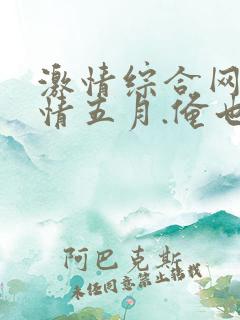 激情综合网
情五月.俺也
阿巴克斯
未经同意禁止转载